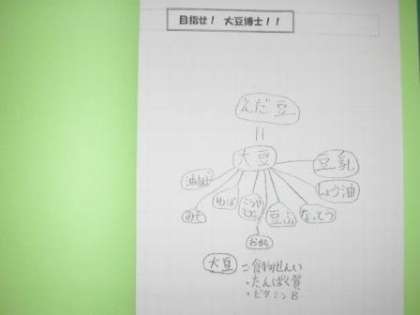 目指せ! 大豆博士!!
えだ豆
=
大豆
豆乳
しょう油
油あげ
みそ
ゆば
豆ふ
なっとう
おから
大豆 = 食物せんい
・たんぱく質
・ビタミンB